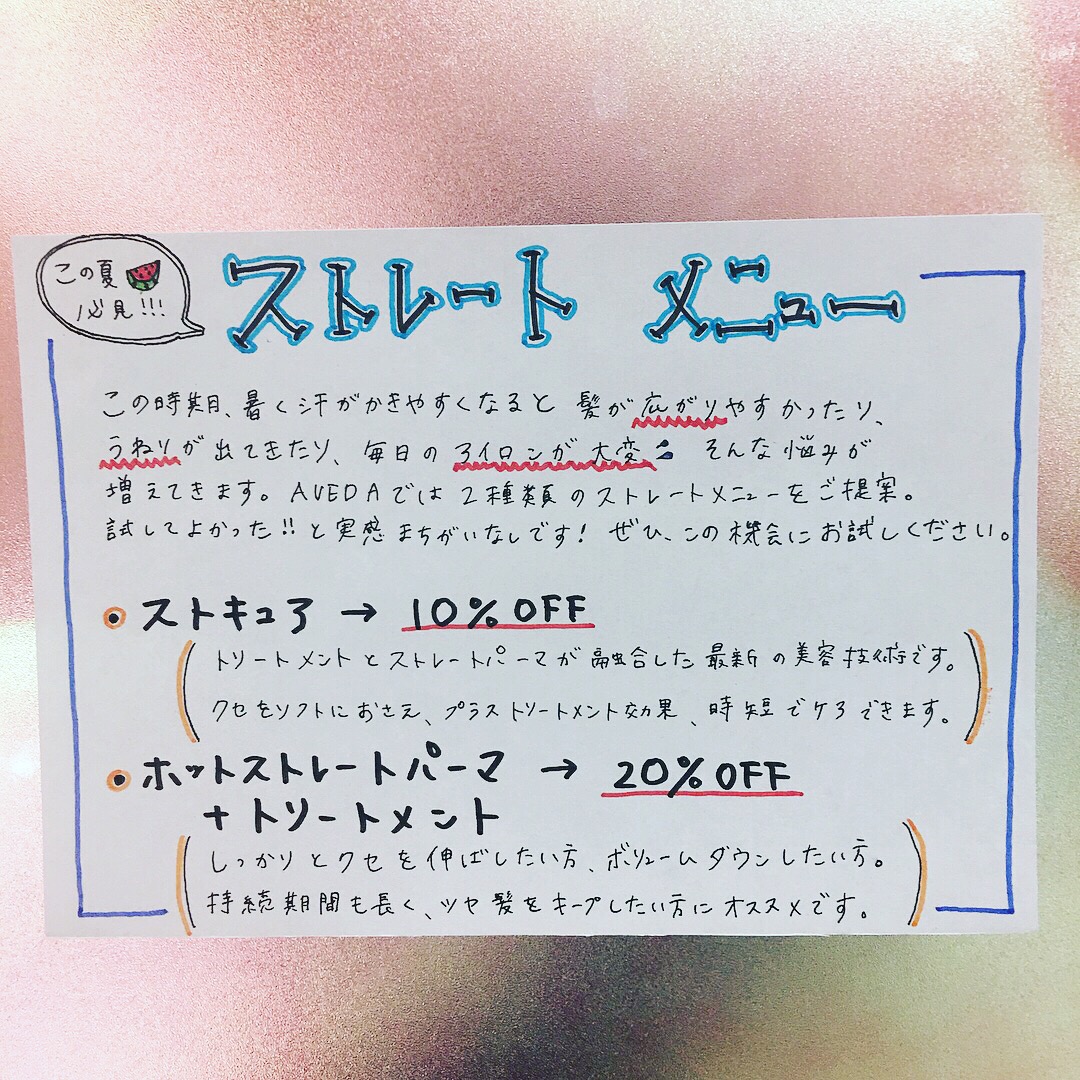 この夏
必見!!!
ストレート メニュー
この時期、暑く汗がかきやすくなると 髪が広がりやすかったり、
うねりが出てきたり、毎日のアイロンが大変 そんな悩みが
増えてきます。AVEDAでは2種類のストレートメニューをご提案。
試してよかった!!と実感まちがいなしです! ぜひ、この機会にお試しください。
• ストキュア → 10%OFF
(トリートメントとストレートパーマが融合した最新の美容技術です。
クセをソフトにおさえ、プラストリートメント効果、時短でケアできます。)
• ホットストレートパーマ → 20%OFF
+トリートメント
(しっかりとクセを伸ばしたい方、ボリュームダウンしたい方。
持続期間も長く、ツヤ髪をキープしたい方にオススメです。)